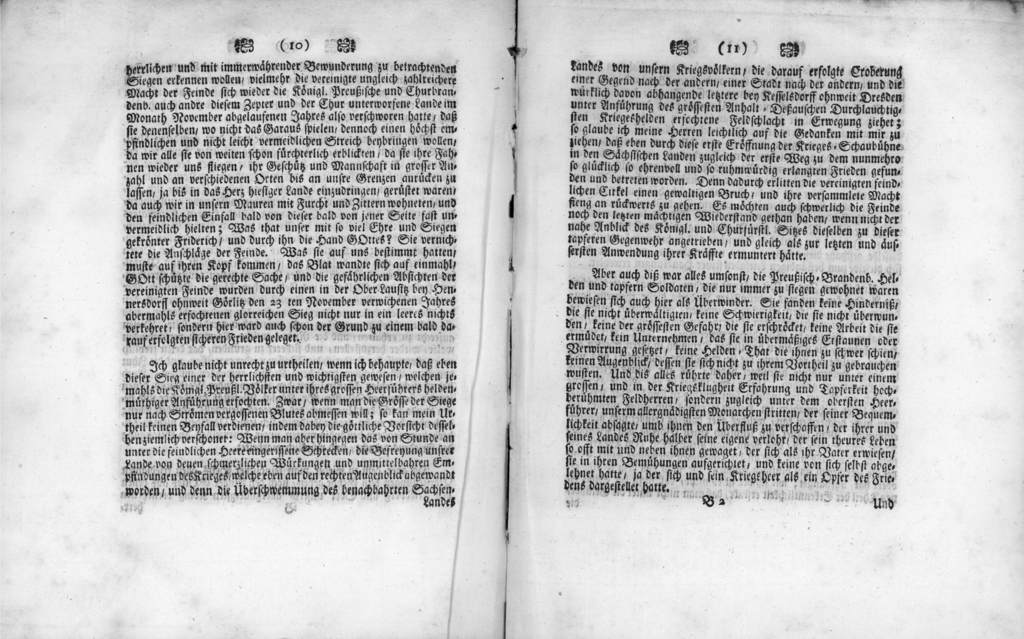 (10)
herrlichen und mit immerwährender Bewunderung zu betrachtenden
Siegen erkennen wollen/ vielmehr die vereinigte ungleich zahlreichere
Macht der Feinde sich wieder die Königl. Preußische und Churbran-
denb. auch andre diesem Zepter und der Chur unterworfene Lande im
Monath November abgelaufenen Jahres also verschworen hatte/ daß
sie denenselben/ wo nicht das Garaus spielen/ dennoch einen höchst em-
pfindlichen und nicht leicht vermeidlichen Streich beybringen wollen/
da wir alle sie von weiten schon fürchterlich erblickten/ da sie ihre Fah-
nen wieder uns fliegen/ ihr Geschütz und Mannschaft in grosser An-
zahl und an verschiedenen Orten bis an unsre Grenzen anrücken zu
lassen/ ja bis in das Herz hiesiger Lande einzudringen/ gerüstet waren/
da auch wir in unsern Mauren mit Furcht und Zittern wohneten/ und
den feindlichen Einfall bald von dieser bald von jener Seite fast un-
vermeidlich hielten; Was that unser mit so viel Ehre und Siegen
gekrönter Friderich/ und durch ihn die Hand GOttes? Sie vernich-
tete die Anschläge der Feinde. Was sie auf uns bestimmt hatten/
muste auf ihren Kopf kommen/ das Blat wandte sich auf einmahl/
GOtt schützte die gerechte Sache/ und die gefährlichen Absichten der
vereinigten Feinde wurden durch einen in der Ober Lausitz bey Hen-
nersdorf ohnweit Görlitz den 23 ten November verwichenen Jahres
abermahls erfochtenen glorreichen Sieg nicht nur in ein leeres nichts
verkehret/ sondern hier ward auch schon der Grund zu einem bald da-
rauf erfolgten sicheren Frieden geleget.
Ich glaube nicht unrecht zu urtheilen/ wenn ich behaupte/ daß eben
dieser Sieg einer der herrlichsten und wichtigsten gewesen/ welchen je-
mahls die Königl. Preußl. Völker unter ihres grossen Heersührers helden-
müthiger Anführung erfochten. Zwar/ wenn man die Grösse der Siege
nur nach Strömen vergossenen Blutes abmessen will; so kan mein Ur-
theil keinen Beyfall verdienen/ indem dabey die göttliche Vorsicht dessel-
ben ziemlich verschonet: Wenn man aber hingegen das von Stunde an
unter die feindlichen Heere eingerissene Schrecken/ die Befreyung unsrer
Lande von denen schmerzlichen Würkungen und unmittelbahren Em-
pfindungen des Krieges/ welche eben auf den rechten Augenblick abgewandt
worden/ und denn die Überschwemmung des benachbahrten Sachsen-
Landes
(11)
Landes von unsern Kriegsvölkern/ die darauf erfolgte Eroberung
einer Gegend nach der andern/ einer Stadt nach der andern/ und die
würklich davon abhangende letztere bey Kesselsdorff ohnweit Dresden
unter Anführung des grössesten Anhalt-Deßauischen Durchlauchtig-
sten Kriegeshelden erfochtene Feldschlacht in Erwegung ziehet;
so glaube ich meine Herren leichtlich auf die Gedanken mit mir zu
ziehen/ daß eben durch diese erste Eröffnung der Krieges-Schaubühne
in den Sächsischen Landen zugleich der erste Weg zu dem nunmehro
so glücklich so ehrenvoll und so ruhmwürdig erlangten Frieden gefun-
den und betreten worden. Denn dadurch erlitten die vereinigten feind-
lichen Cirkel einen gewaltigen Bruch/ und ihre versammlete Macht
fieng an rückwerts zu gehen. Es möchten auch schwerlich die Feinde
noch den letzten mächtigen Wiederstand gethan haben/ wenn nicht der
nahe Anblick des Königl. und Churfürstl. Sitzes dieselben zu dieser
tapferen Gegenwehr angetrieben/ und gleich als zur letzten und äus-
sersten Anwendung ihrer Kräffte ermuntert hätte.
Aber auch diß war alles umsonst/ die Preußisch-Brandenb. Hel-
den und tapfern Soldaten/ die nur immer zu siegen gewohnet waren
bewiesen sich auch hier als Überwinder. Sie fanden keine Hinderniß/
die sie nicht überwältigten/ keine Schwierigkeit/ die sie nicht überwun-
den/ keine der grössesten Gefahr/ die sie erschröcket/ keine Arbeit die sie
ermüdet/ kein Unternehmen/ das sie in übermäßiges Erstaunen oder
Verwirrung gesetzet/ keine Helden-That die ihnen zu schwer schien/
keinen Augenblick/ dessen sie sich nicht zu ihrem Vortheil zu gebrauchen
wusten. Und dis alles rührte daher/ weil sie nicht nur unter einem
grossen/ und in der Kriegsklugheit Erfahrung und Tapferkeit hoch-
berühmten Feldherren/ sondern zugleich unter dem obersten Heer-
führer/ unserm allergnädigsten Monarchen stritten/ der seiner Bequem-
lichkeit absagte/ umb ihnen den Überfluß zu verschaffen/ der ihrer und
seines Landes Ruhe halber seine eigene verlohr/ der sein theures Leben
so oft mit und neben ihnen gewaget/ der sich als ihr Vater erwiesen/
sie in ihren Bemühungen aufgerichtet/ und keine von sich selbst abge-
lehnet hatte/ ja der sich und sein Kriegsheer als ein Opfer des Frie-
dens dargestellet hatte.
B 2
Und